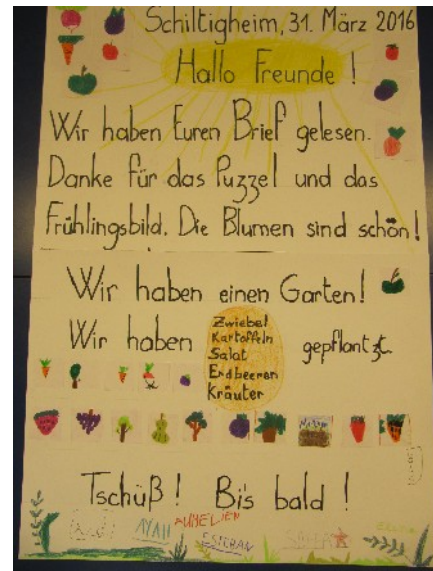 Schiltigheim, 31. März 2016
Hallo Freunde !
Wir haben Euren Brief gelesen.
Danke für das Puzzel und das
Frühlingsbild. Die Blumen sind schön!
Wir haben einen Garten!
Wir haben
Zwiebel
Kartoffeln
Salat
Erdbeeren
Kräuter
gepflantzt.
Tschüß ! Bis bald !
AYAH
AUMELIEN
ESTEBAN